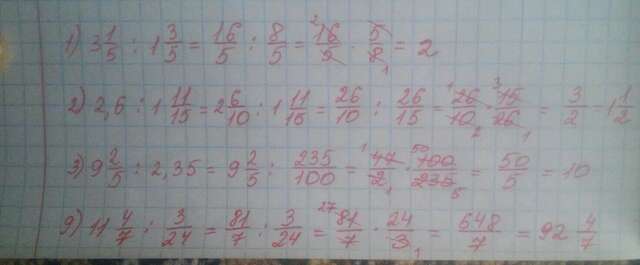 1) 3 1/5 : 1 3/5 = 16/5 : 8/5 = 16/5 · 5/8 = 2
2) 2,6 : 1 11/15 = 2 6/10 : 1 11/15 = 26/10 : 26/15 = 26/10 · 15/26 = 3/2 = 1 1/2
3) 9 2/5 : 2,35 = 9 2/5 : 235/100 = 47/2 · 100/235 = 50/5 = 10
9) 11 4/7 : 3/24 = 81/7 : 3/24 = 81/7 · 24/3 = 648/7 = 92 4/7